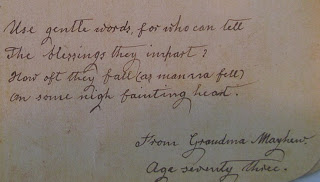 Use gentle words, for who can tell
The blessings they impart?
How oft they fall (as manna fell)
On some nigh fainting heart.
From Grandma Mayhew.
Age seventy three.